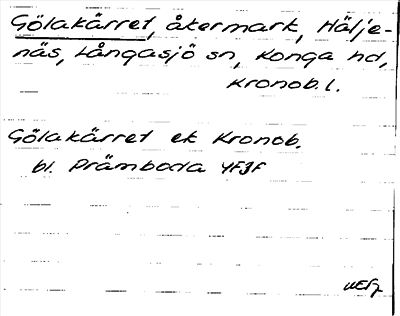 Gölakärret, åkermark, Hälje-
näs, Långasjö sn, Konga hd,
Kronob. l.
Gölakärret ek Kronob.
bl. Prämboda 4F3F